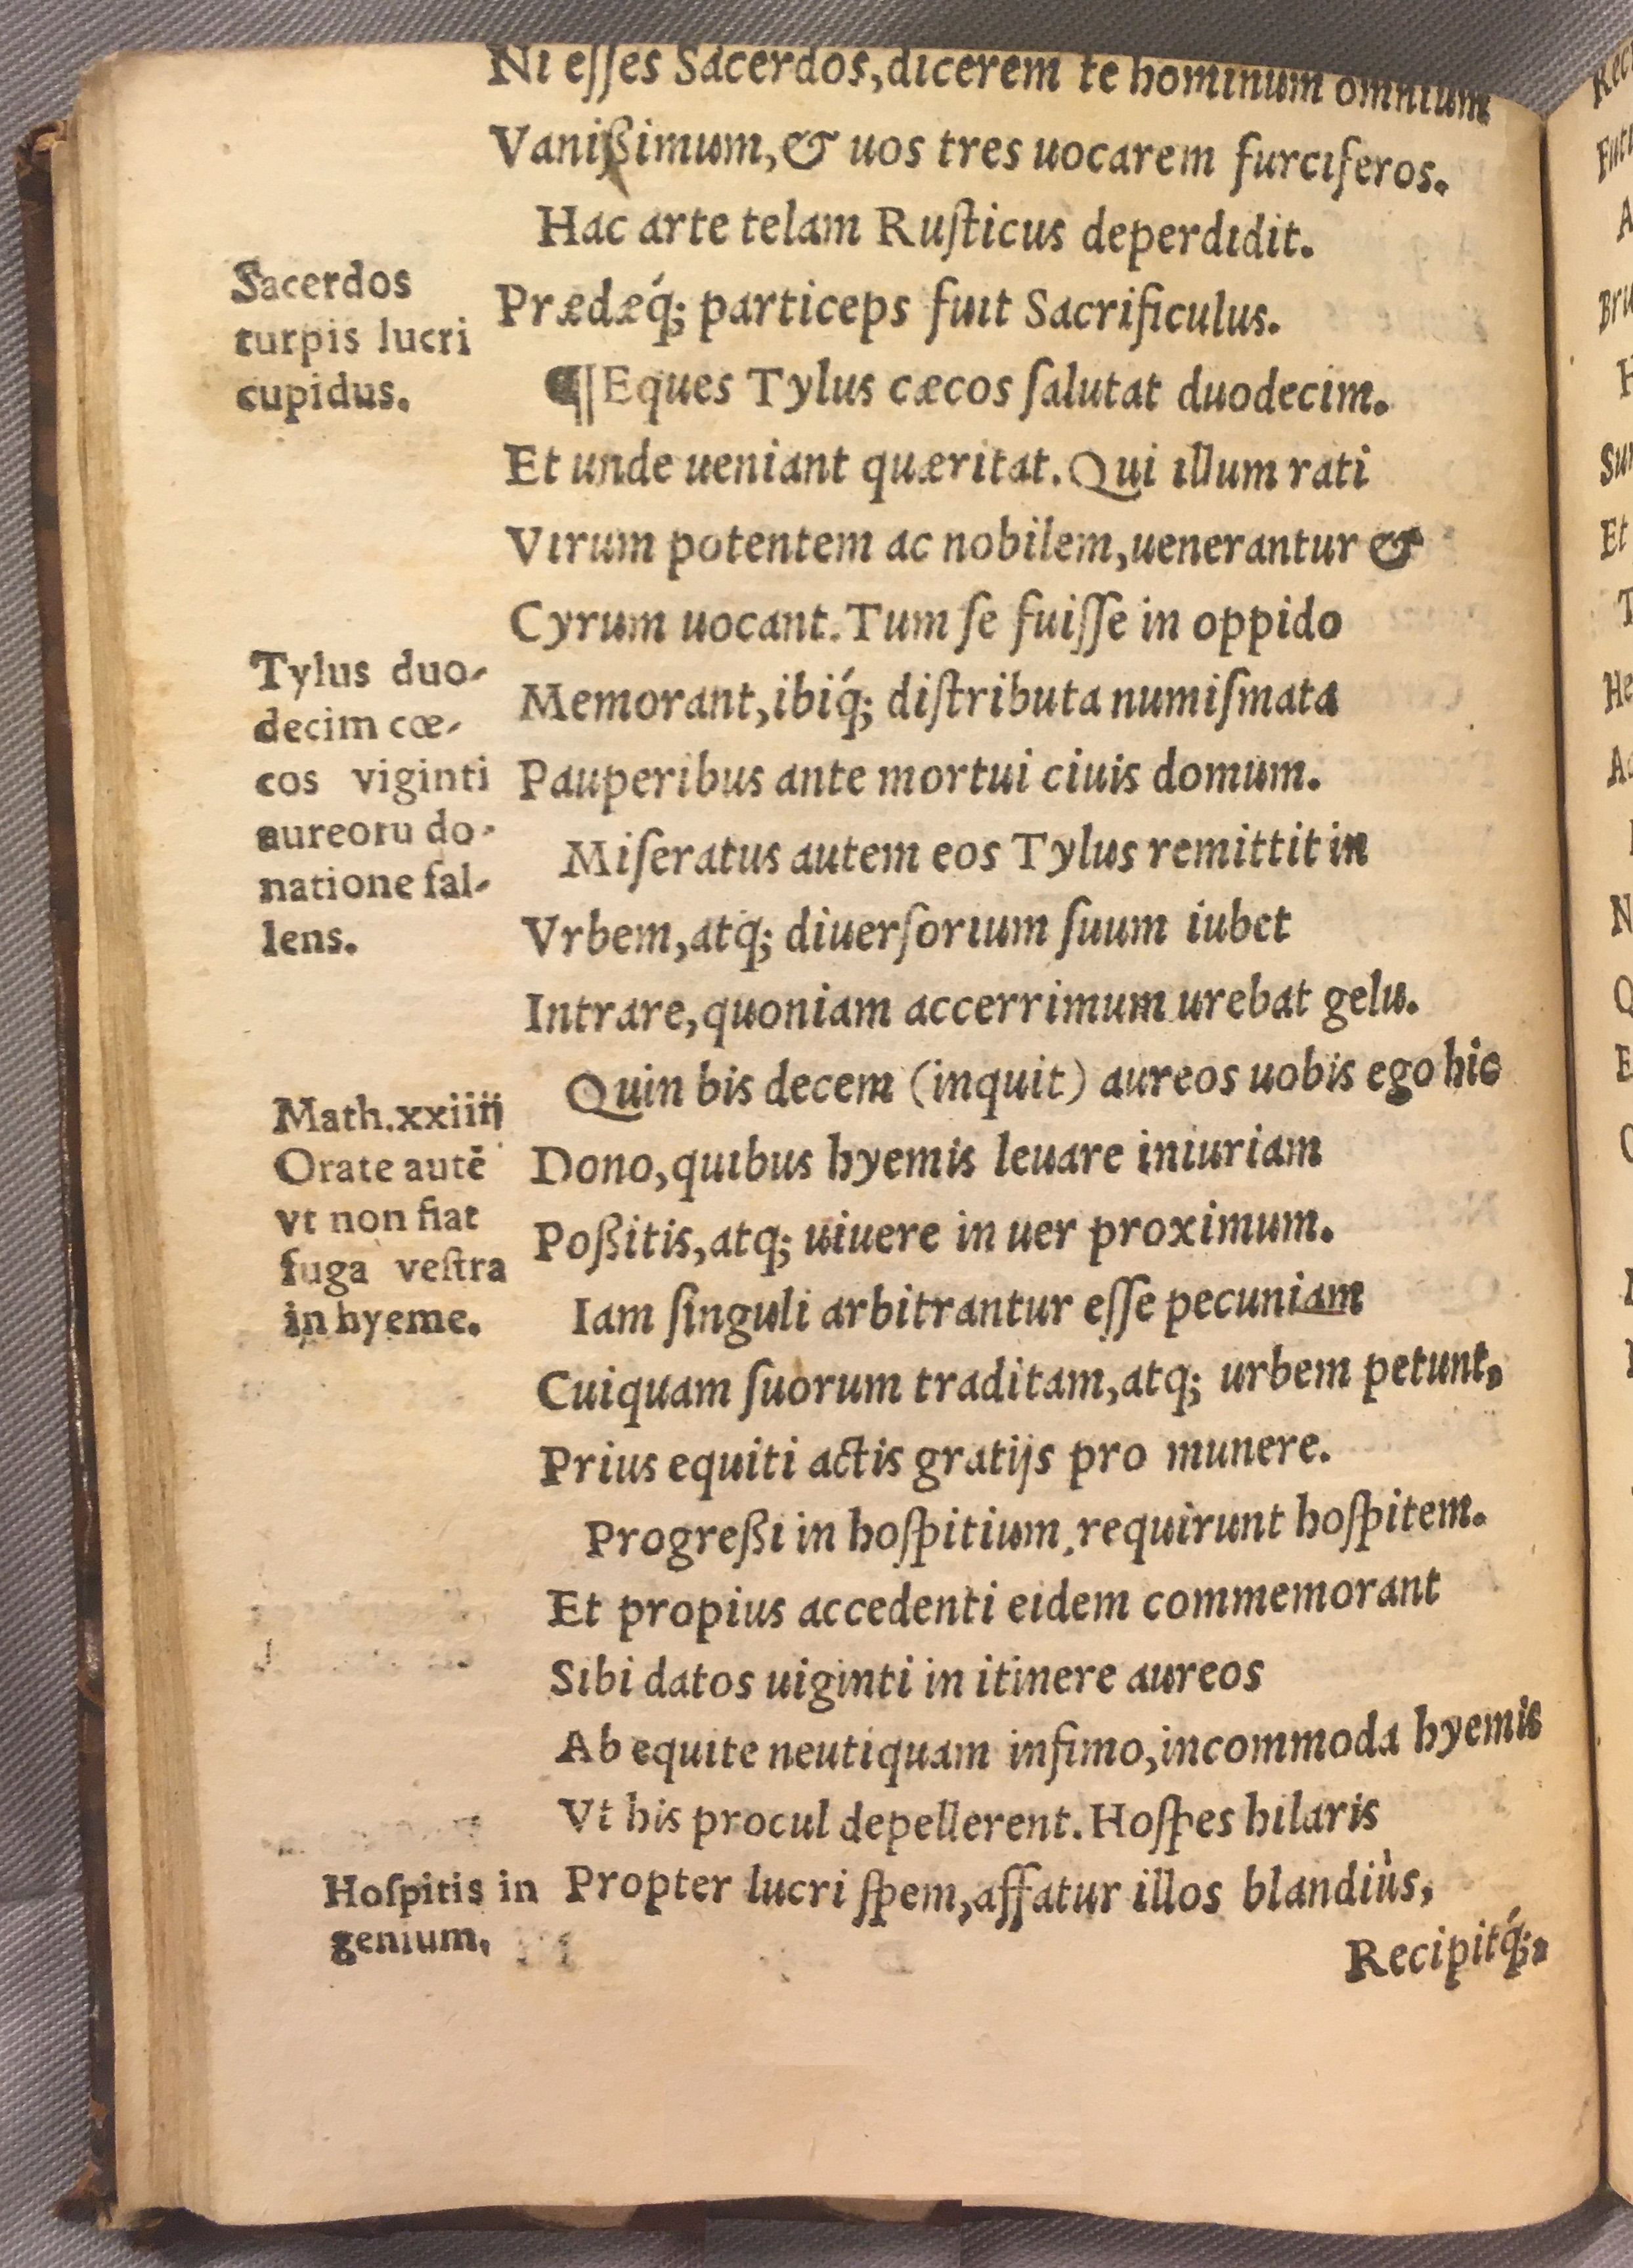 Ni eſſes Sacerdos, dicerem te hominum omnium
Vanißimum, & uos tres uocarem furciferos.
Hac arte telam Ruſticus deperdidit.
Sacerdos
turpis lucri
cupidus.
Prædæq́; particeps fuit Sacrificulus.
¶ Eques Tylus cæcos ſalutat duodecim.
Et unde ueniant quæritat. Qui illum rati
Virum potentem ac nobilem, uenerantur &
Cyrum uocant. Tum ſe fuiſſe in oppido
Tylus duo-
decim cœ-
cos viginti
aureorũ do-
natione fal-
lens.
Memorant, ibiq́; diſtributa numiſmata
Pauperibus ante mortui ciuis domum.
Miſeratus autem eos Tylus remittit in
Vrbem, atq; diuerſorium ſuum iubet
Intrare, quoniam accerrimum urebat gelu.
Quin bis decem (inquit) aureos uobis ego hic
Math. xxiiij
Orate autē
vt non fiat
fuga veſtra
in hyeme.
Dono, quibus hyemis leuare iniuriam
Poßitis, atq; uiuere in uer proximum.
Iam ſinguli arbitrantur eſſe pecuniam
Cuiquam ſuorum traditam, atq; urbem petunt,
Prius equiti actis gratijs pro munere.
Progreßi in hoſpitium, requirunt hoſpitem.
Et propius accedenti eidem commemorant
Sibi datos uiginti in itinere aureos
Ab equite neutiquam infimo, incommoda hyemis
Vt his procul depellerent. Hoſpes hilaris
Hoſpitis in
genium.
Propter lucri ſpem, affatur illos blandiùs,
Recipitq́;,